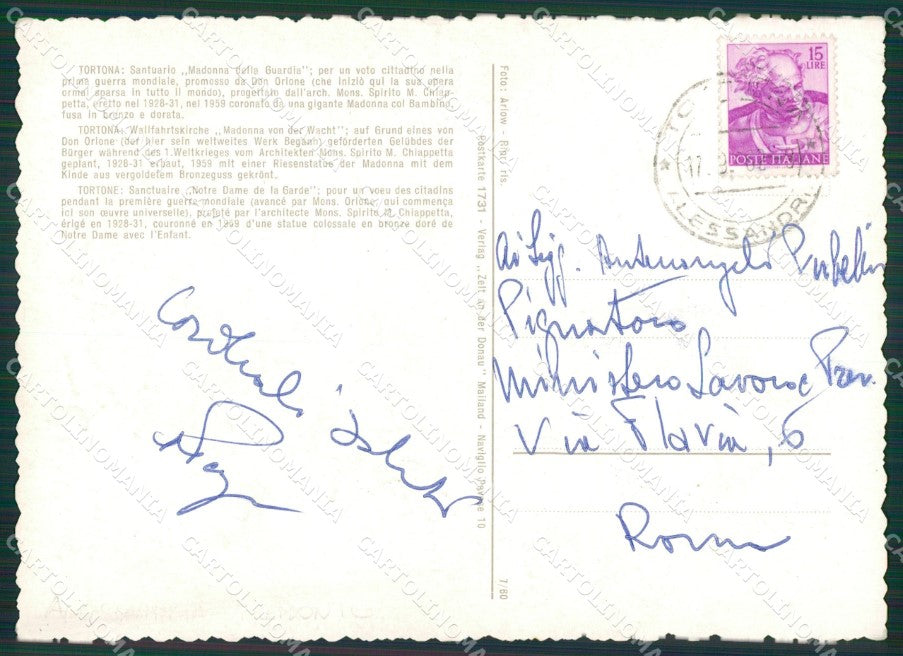 TORTONA: Santuario „Madonna della Guardia"; per un voto cittadino nella
prima guerra mondiale, promosso da Don Orione (che iniziò qui la sua opera
ormai sparsa in tutto il mondo), progettato dall'arch. Mons. Spirito M. Chiap-
petta, eretto nel 1928-31, nel 1959 coronato da una gigante Madonna col Bambino
fusa in bronzo e dorata.
TORTONA: Wallfahrtskirche „Madonna von der Wacht"; auf Grund eines von
Don Orione (der hier sein weltweites Werk Begann) geförderten Gelübdes der
Bürger während des 1.Weltkrieges vom Architekten Mons. Spirito M. Chiappetta
geplant, 1928-31 erbaut, 1959 mit einer Riesenstatue der Madonna mit dem
Kinde aus vergoldetem Bronzeguss gekrönt.
TORTONE: Sanctuaire „Notre Dame de la Garde"; pour un voeu des citadins
pendant la première guerre mondiale (avancé par Mons. Orione, qui commença
ici son œuvre universelle), projeté par l'architecte Mons. Spirito M. Chiappetta,
érigé en 1928-31, couronné en 1959 d'une statue colossale en bronze doré de
Notre Dame avec l'Enfant.
Cordiali
Foto: Arlow - Ripr. ris.
Postkarte 1731 - Verlag „Zeit an der Donau" Mailand - Naviglio Pavese 10
7/60
15
LIRE
POSTE ITALIANE
17.
ALESSANDRIA
Pignataro
Ministero Lavoro e Prev.
Via Flavia, 6
Roma
CARTOLINOMANIA